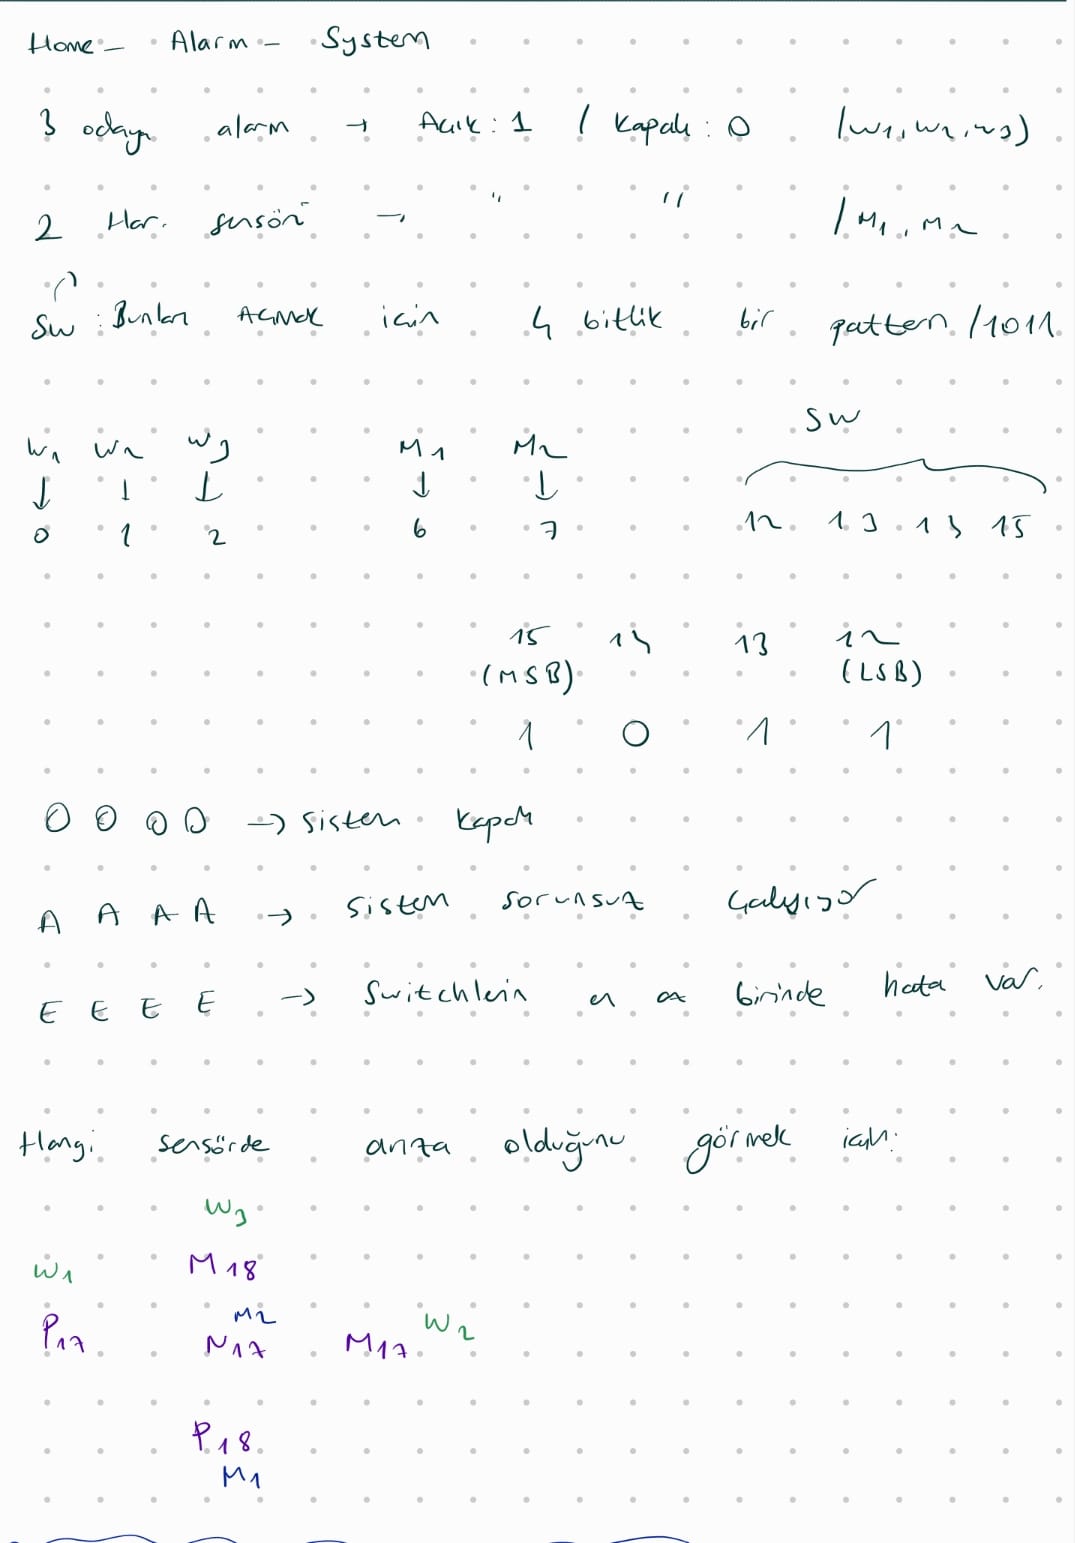 Home - Alarm - System
3 odaya alarm → Açık : 1 / Kapalı : 0 / w1, w2, w3)
2 Har. sensörü → " " / M1, M2
SW : Bunları Açmak için 4 bitlik bir pattern / 1011
SW
W1 W2 W3 M1 M2
↓ ↓ ↓ ↓ ↓
0 1 2 6 7 12 13 14 15
15 14 13 12
(MSB) (LSB)
1 0 1 1
0 0 0 0 → Sistem Kapalı
A A A A → Sistem sorunsuz çalışıyor
E E E E → Switchlerin en az birinde hata var.
Hangi sensörde arıza olduğunu görmek için:
W3
W1 M18
M2 W2
P17 N17 M17
P18
M1